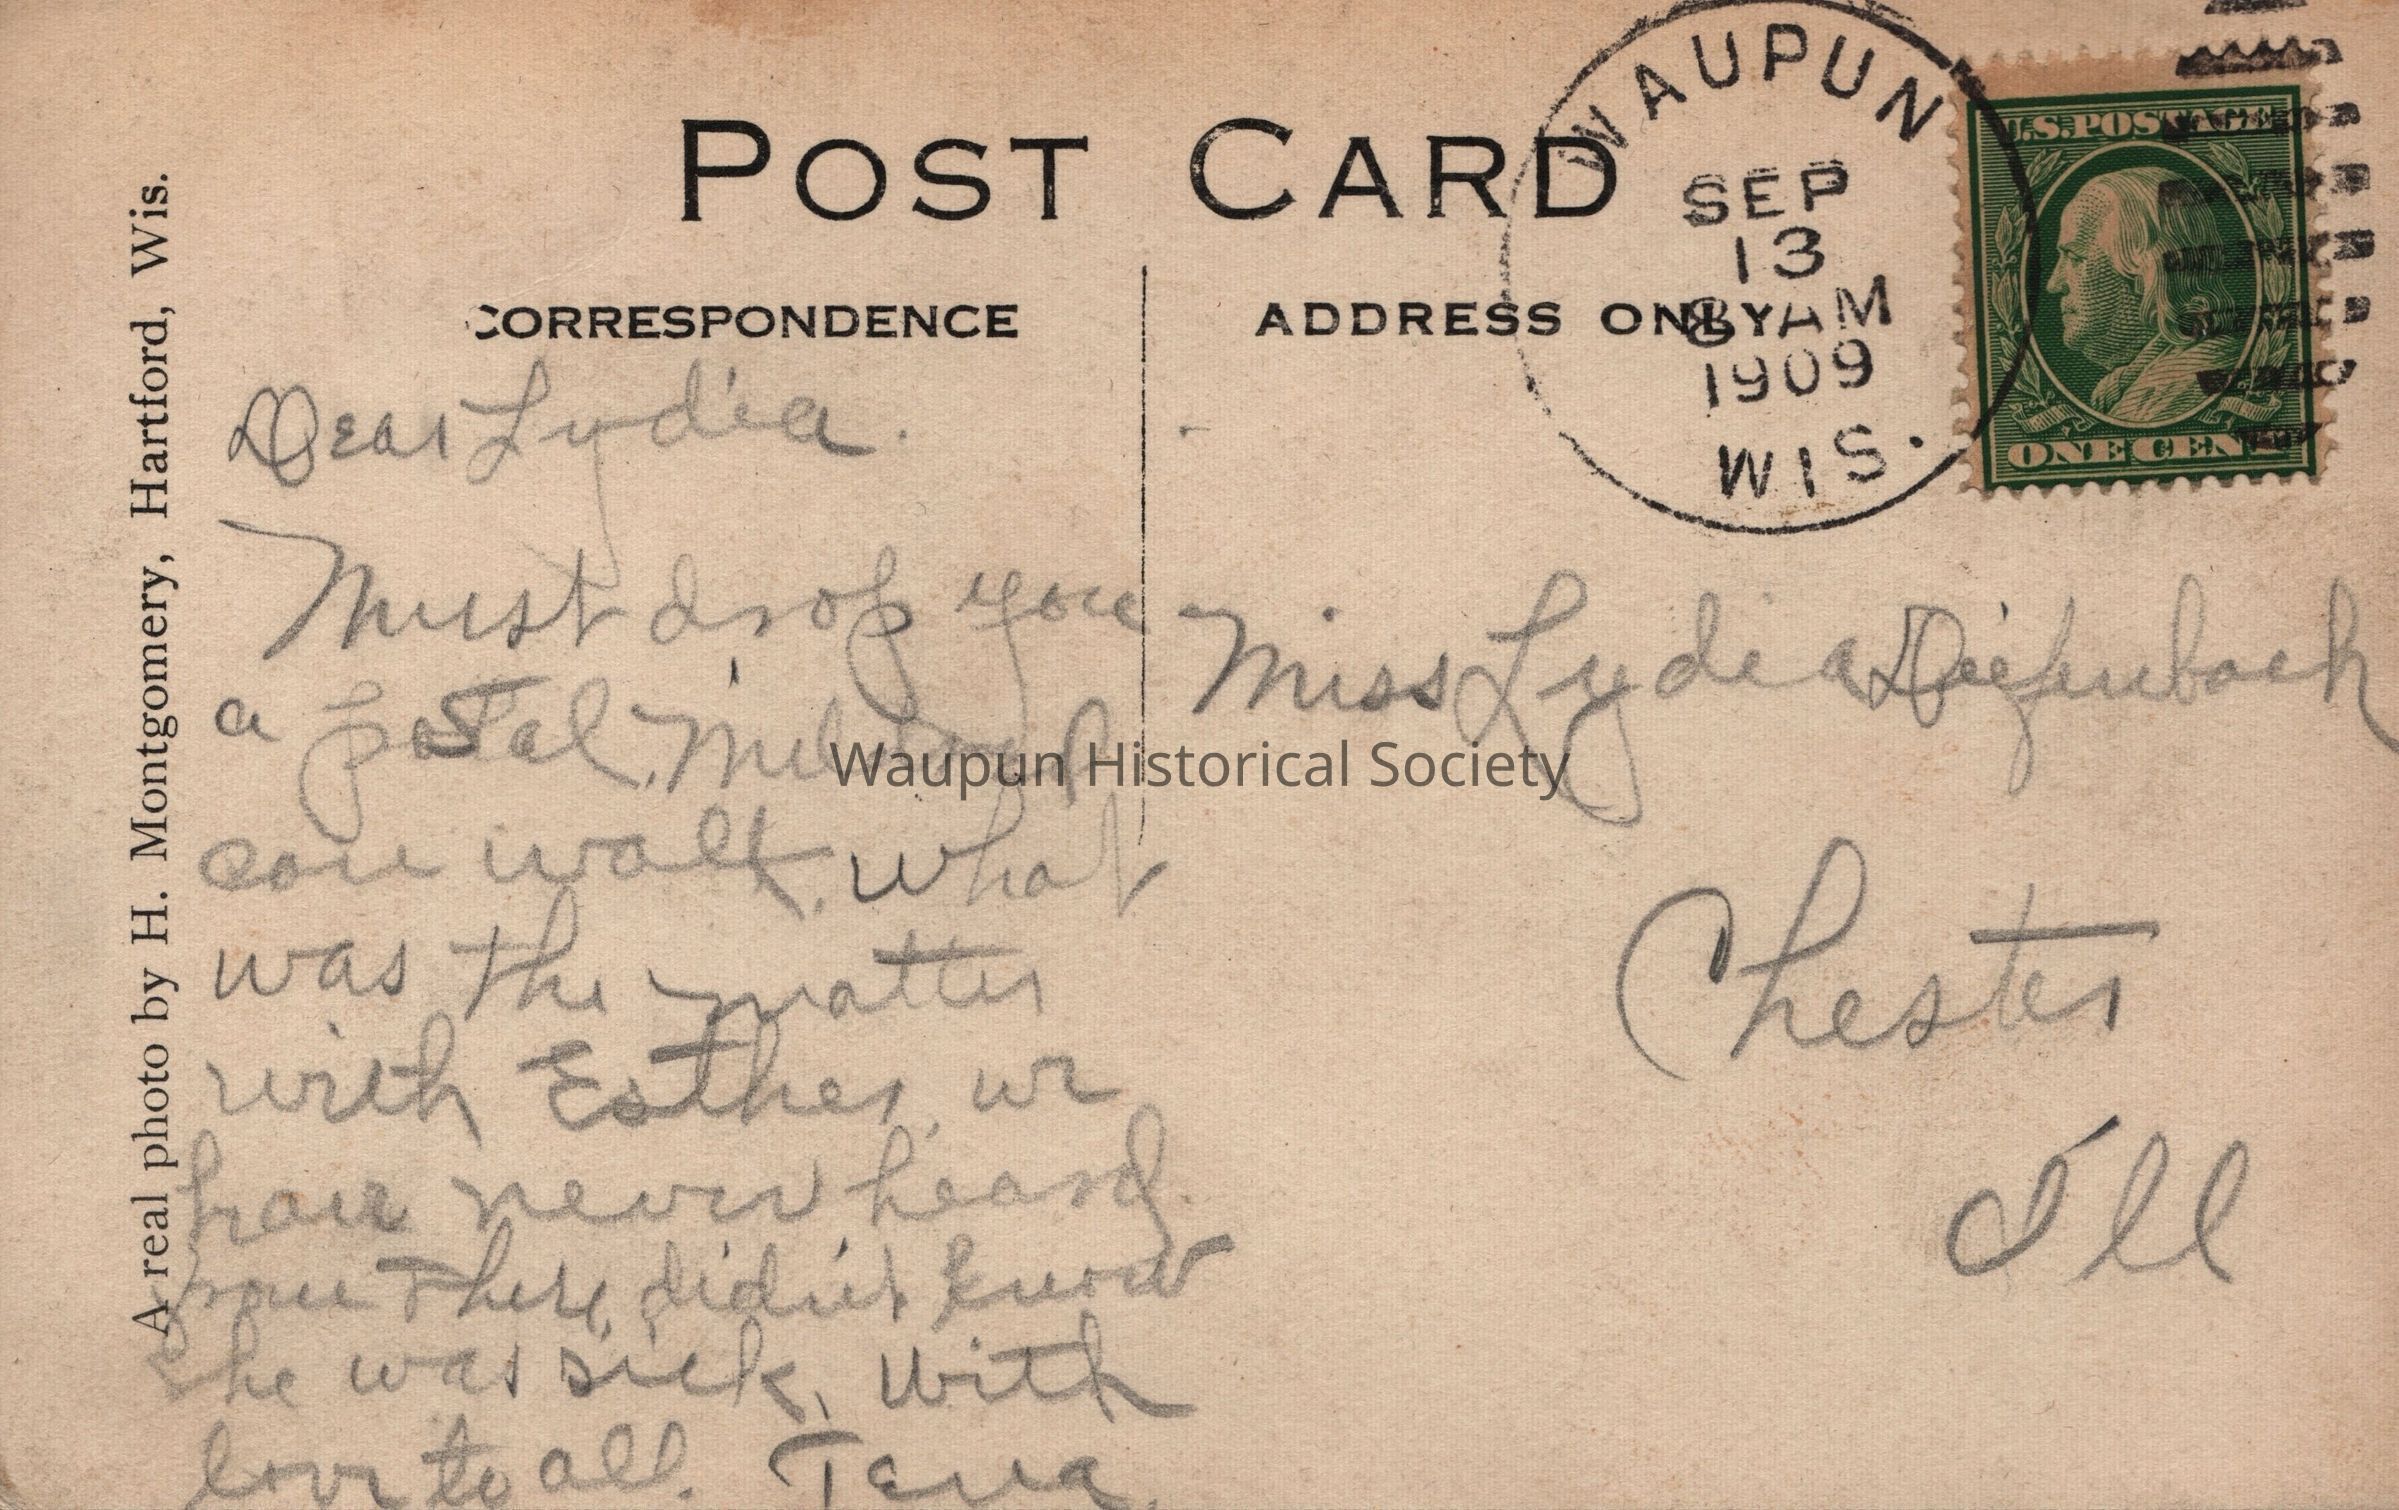 POST CARD
CORRESPONDENCE
ADDRESS ONLY
WAUPUN
SEP
13
8 AM
1909
WIS.
U.S. POSTAGE
ONE CENT
A real photo by H. Montgomery, Hartford, Wis.
Dear Lydia.
Must drop you
a postal. Mildred
can walk. what
was the matter
with Esther, we
have never heard.
from there, didn't know
she was sick, with
love to all. Tena.
Miss Lydia Diefenbach
Chester
Ill
Waupun Historical Society